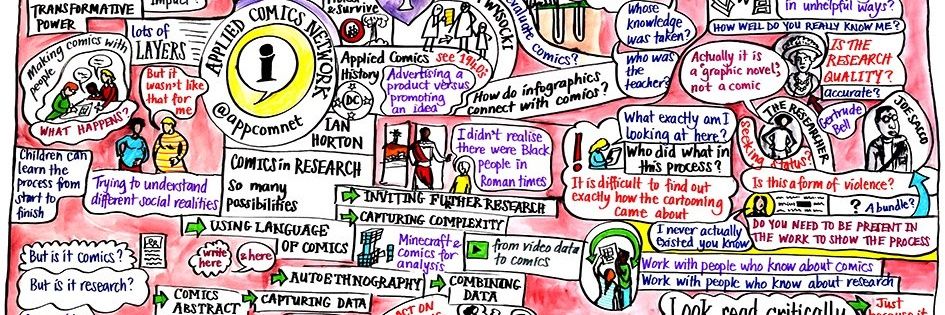 TRANSFORMATIVE
POWER
lots of
LAYERS
Making comics with
people
WHAT HAPPENS?
But it
wasn't like
that for
me
Children can
learn the
process from
start to
finish
Trying to understand
different social realities
APPLIED COMICS NETWORK
i
@appcomnet
& survive
Applied Comics
History
see 1940s
DC
Advertising a
product versus
promoting
an idea
IAN
HORTON
COMICS in RESEARCH
so many
possibilities
comics?
How do infographics
connect with comics?
I didn't realise
there were Black
people in
Roman times
INVITING FURTHER RESEARCH
CAPTURING COMPLEXITY
USING LANGUAGE
OF COMICS
Minecraft &
comics for
analysis
from video data
to comics
But is it comic?
But is it research?
I write
here
& here
AUTOETHNOGRAPHY
COMBINING
DATA
COMICS
ABSTRACT
CAPTURING DATA
Whose
knowledge
was taken?
who was
the
teacher?
in unhelpful ways?
HOW WELL DO YOU REALLY KNOW ME?
Actually it is
a "graphic novel",
not a comic
IS THE
RESEARCH
QUALITY?
accurate?
Gertrude
Bell
THE RESEARCHER
seeking status?
JOE SACCO
What exactly am I
looking at here?
Who did what in
this process?
It is difficult to find out
exactly how the cartooning
came about
Is this a form of violence?
? A bundle?
DO YOU NEED TO BE PRESENT IN
THE WORK TO SHOW THE PROCESS
I never actually
existed you know
Work with people who know about comics
Work with people who know about research
Look, read critically
Just
because it